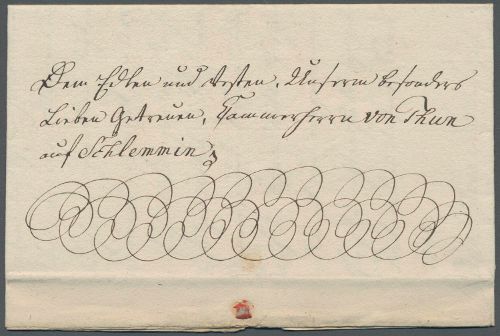 Dem Edlen und Vesten, Unserm besonders
Lieben Getreuen, Kammerherrn von Thun
auf Schlemmin